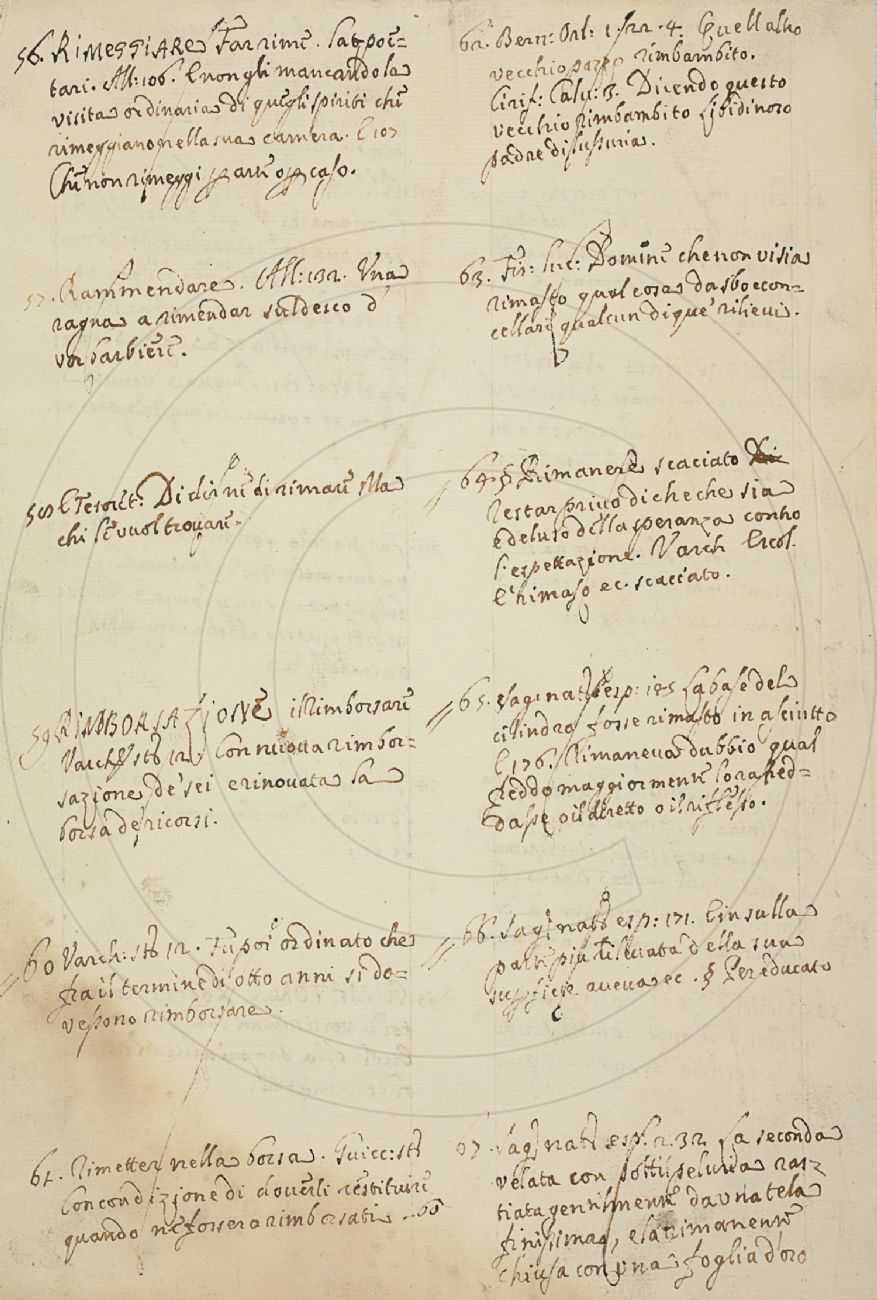 56. RIMEGGIARE Far rime. Lat. poe=
tari. All: 106. E non gli mancando la
visita ordinaria di quegli spiriti che
rimeggiano nella sua camera. E 107
Che non rimeggi p arte o p caso.
57. Rammendare. All: 132. Una
ragna a rimendar sul desco d'
un barbiere.
58 Tesoret: Di dir ne di rimare Ma
chi le vuol trovare.
59 RIMBORSAZIONE il Rimborsare
Varch. st: 12. Con nuova rimbor=
sazione de' sei e rinovata la
borsa de ricorsi.
60 Varch: st: 12. Fu poi ordinato che
fra il termine di otto anni si do=
vessono rimborsare.
61. Rimetter nella borsa. Guicc: st:
Con condizione di doverli restituire
quando ne fossero rimborsati
62. Bern: Orl: 1. 22. 4. Quell altro
vecchio pazzo rimbambito.
Cirif: Calv: 3. Dicendo questo
vecchio rimbambito libidinoso
padre di lussuria.
63. Fir: Luc: Domine che non vi sia
rimasto qual cosa da sbocconcon=
cellare qualcun di que' rilievi.
64. § Rimanere scaciato
Restar privo di che che sia
e deluso della speranza con ho
l'espettazione. Varch Ercol.
E' rimaso ec. scaciato.
65. Sag. nat: esp: 125 La base del
cilindro fosse rimasto in asciutto
E 176. Rimaneva dubbio qual
freddo maggiormente lo raffred=
dasse o il diretto o il riflesso.
66. Sag: nat: esp: 171. E in sulla
parte più rilevata della sua
superficie aveva ec. § Per educato
67. Sag: nat: esp. 232 La seconda
velata con sottil selvuia ras=
tiata gentilmente da una tela
finissima, e la rimanente
chiusa con una foglia d'oro